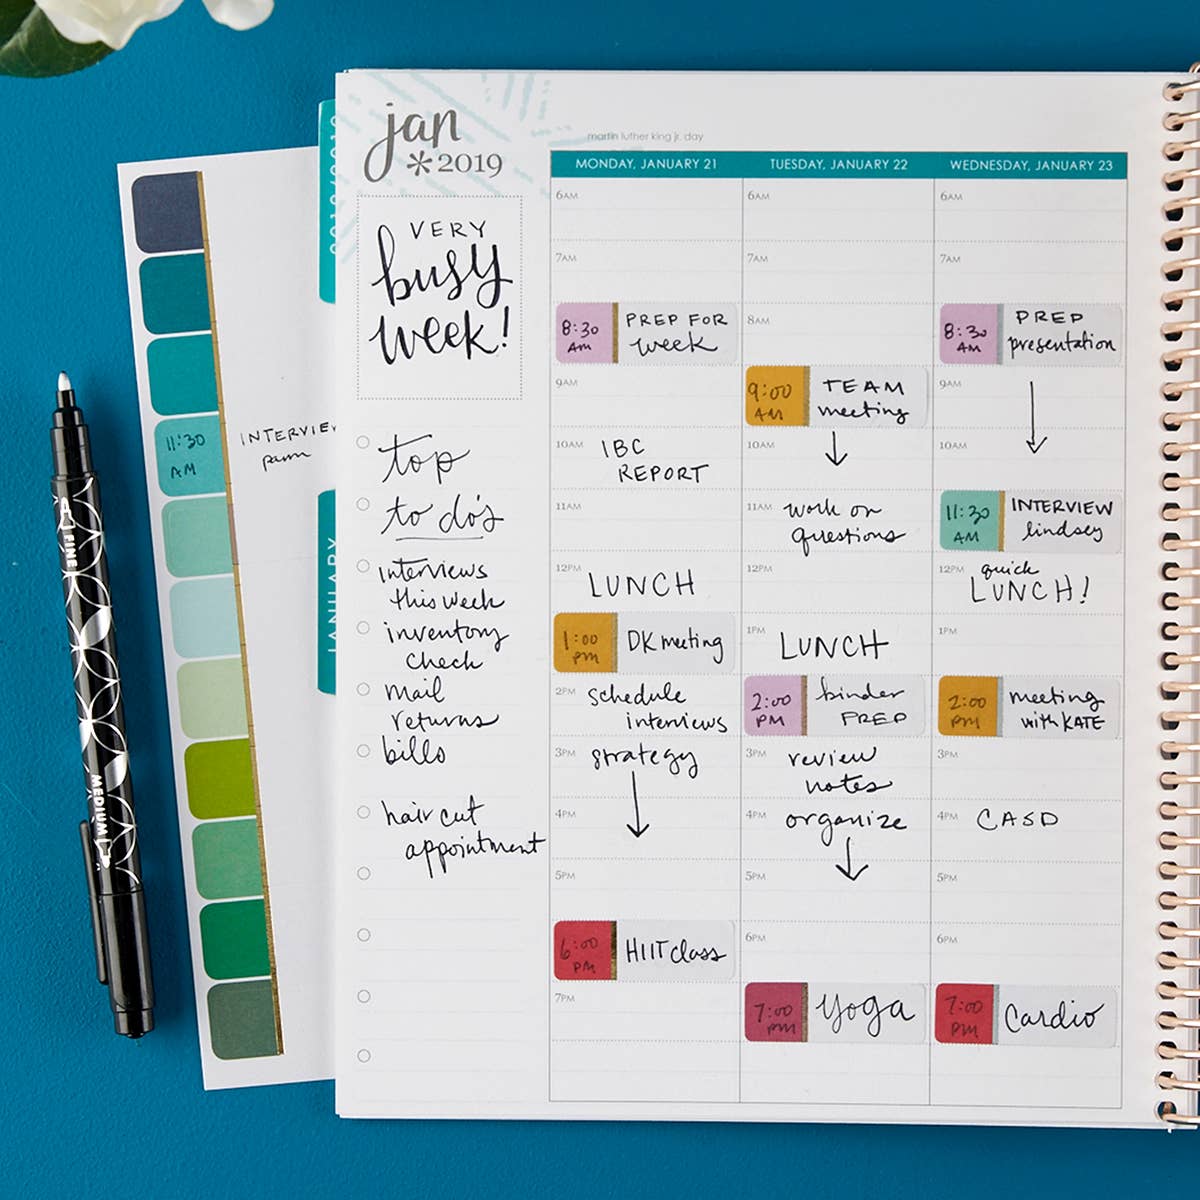 jan
*2019
martin luther king jr. day
VERY
busy
week!
top
to do's
interviews
this week
inventory
check
mail
returns
bills
hair cut
appointment
MONDAY, JANUARY 21
6AM
7AM
8:30
AM
PREP FOR
week
9AM
10AM
IBC
REPORT
11AM
12PM
LUNCH
1:00
PM
DK meeting
2PM
schedule
interviews
3PM
strategy
4PM
5PM
6:00
PM
HIIT class
7PM
TUESDAY, JANUARY 22
6AM
7AM
8AM
9:00
AM
TEAM
meeting
10AM
11AM
work on
questions
12PM
1PM
LUNCH
2:00
PM
binder
PREP
3PM
review
notes
4PM
organize
5PM
6PM
7:00
PM
Yoga
WEDNESDAY, JANUARY 23
6AM
7AM
8:30
AM
PREP
presentation
9AM
10AM
11:30
AM
INTERVIEW
lindsey
12PM
quick
LUNCH!
1PM
2:00
PM
meeting
with KATE
3PM
4PM
CASD
5PM
6PM
7:00
PM
Cardio
11:30
AM
INTERVIEW
2018/2019
JANUARY
FINE
MEDIUM